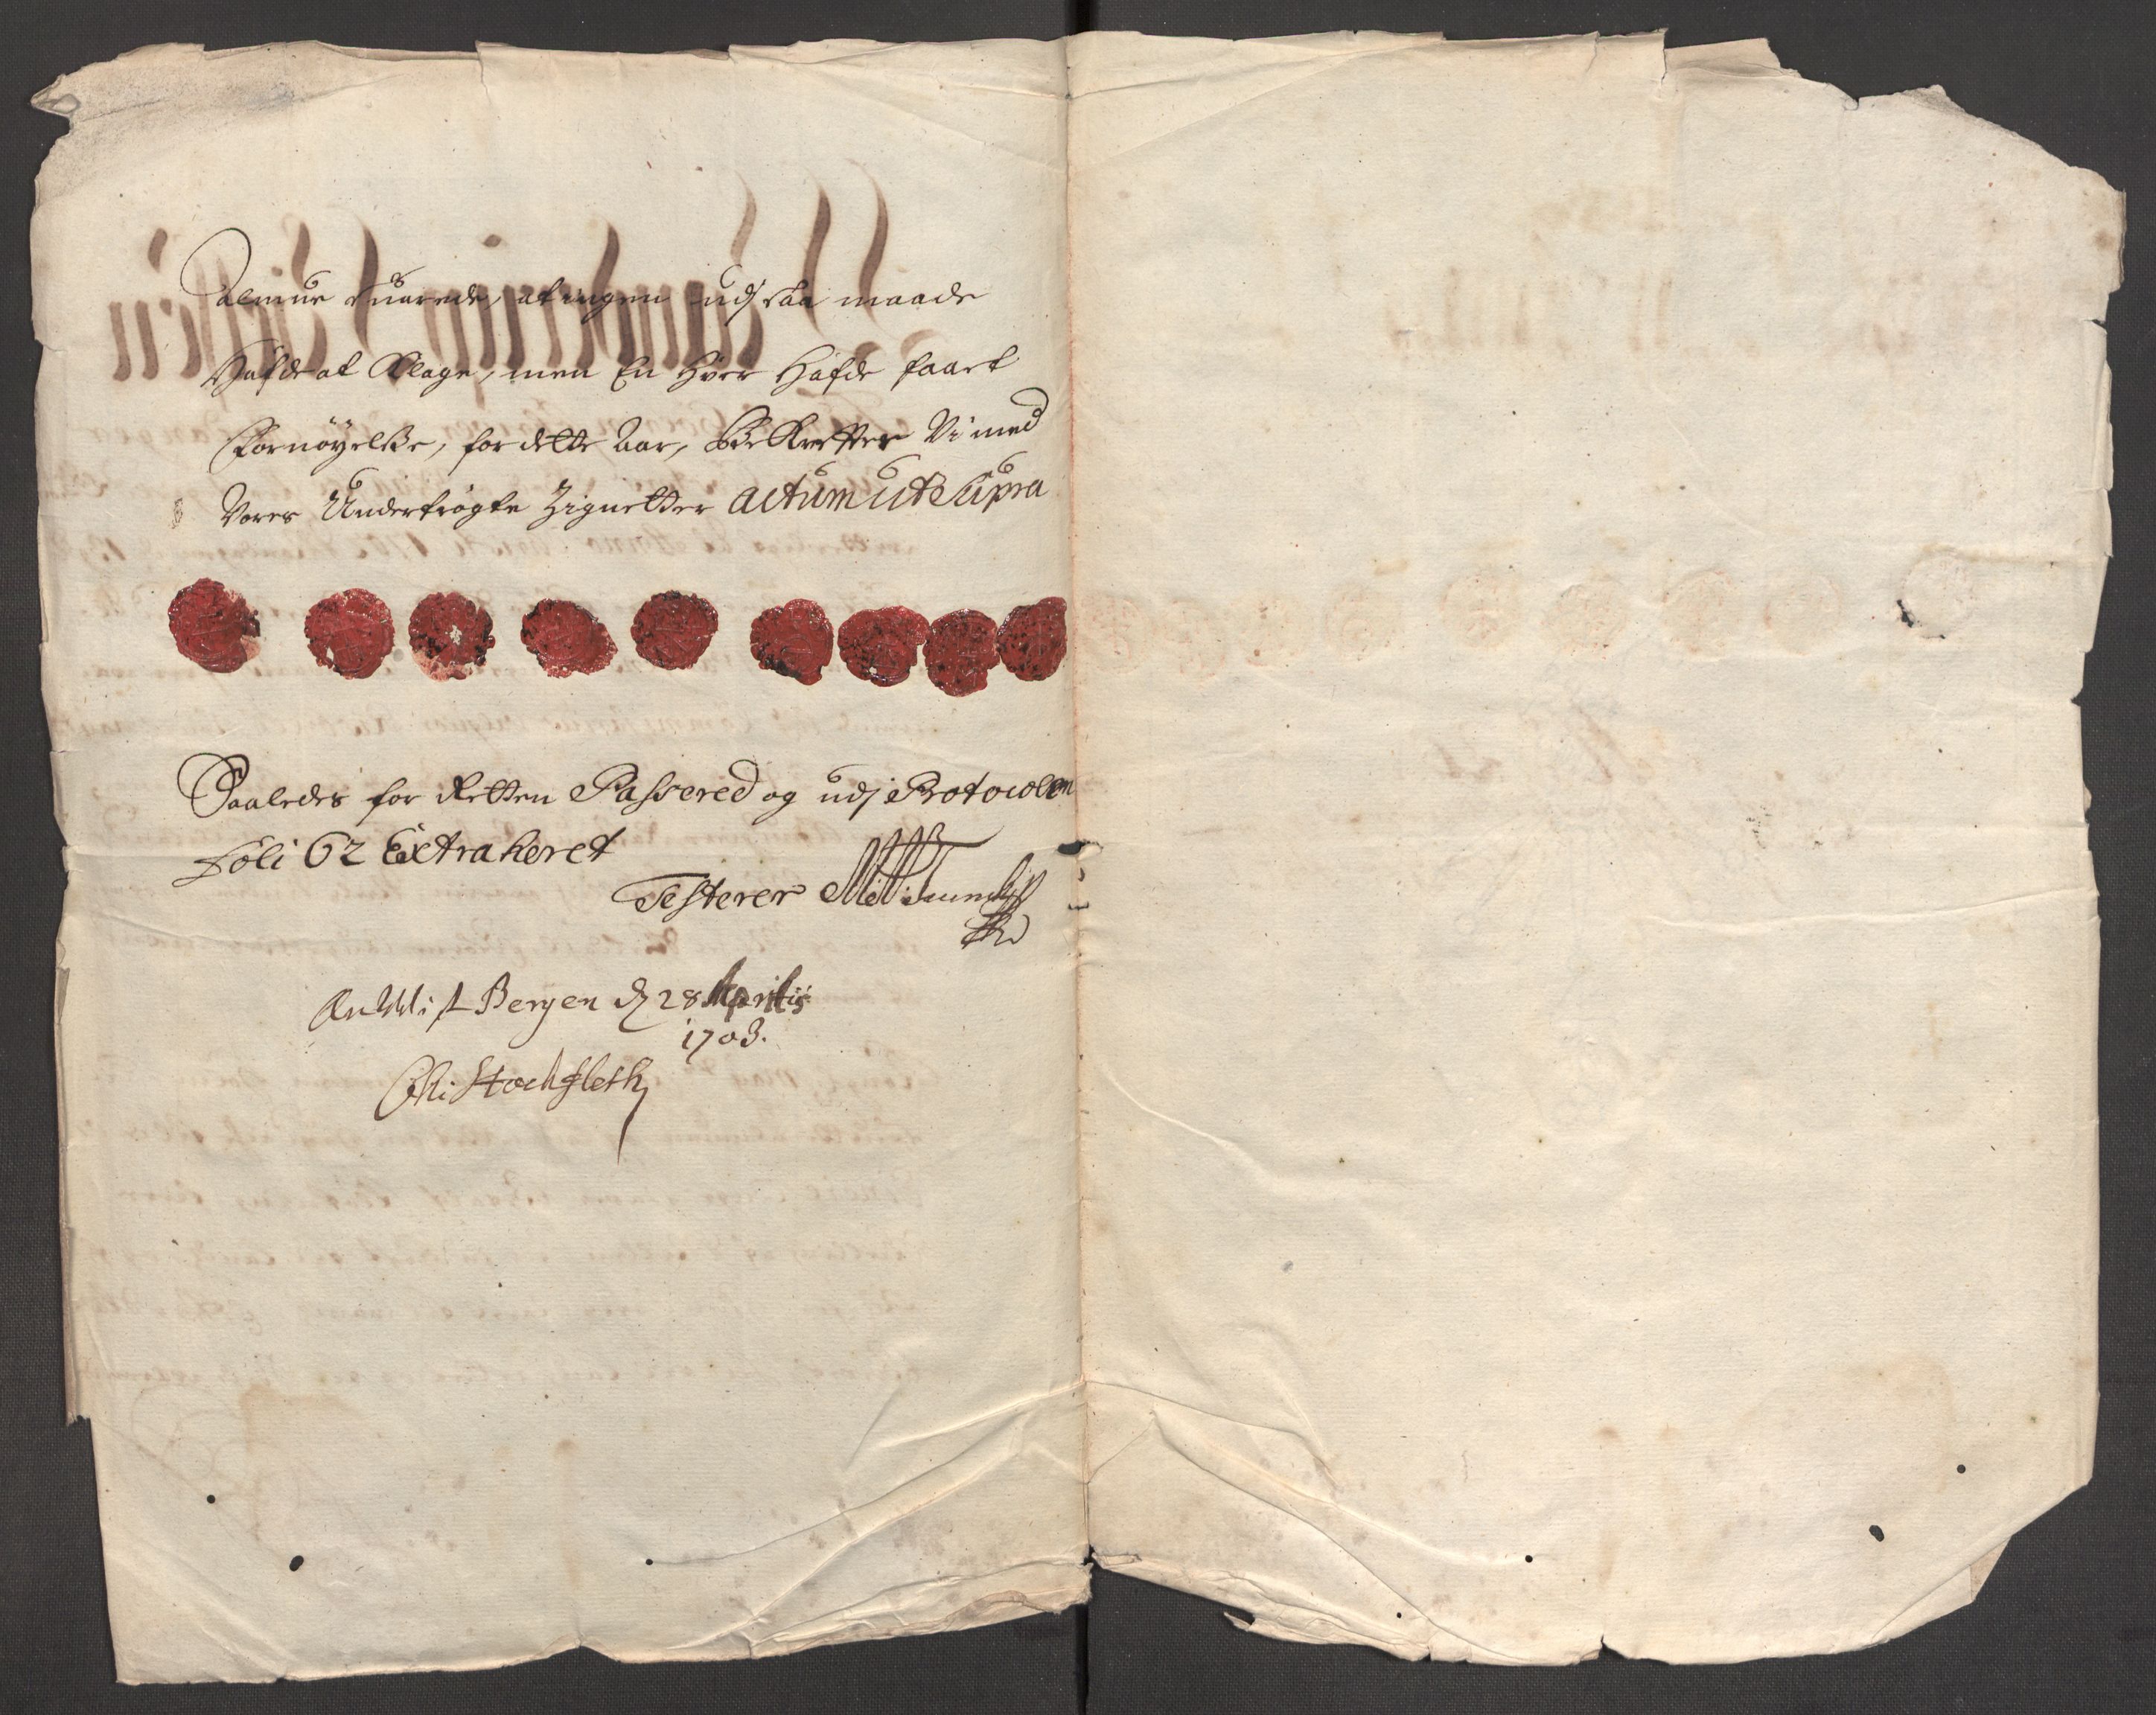 Salmue Suarede, at ingen udj saa maade
Hafde at Klage, men En Hver Hafde faaet
Fornøyelße, for dette Aar, Bekrefter Vi med
Vores Undertrögte Zignetter actum ut Supra
Saaledes for Retten Passered og udj Protocollen
Foli 62 Extraheret
Testerer
Bergen d 28 Aprilis
1703.
Stockfleth